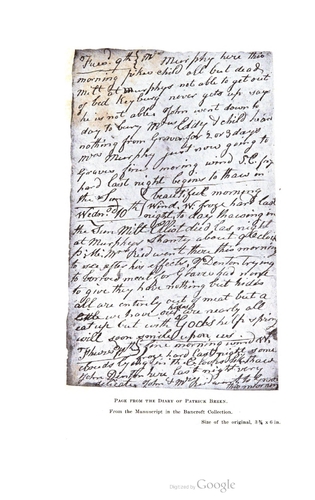 Tuesd. 9th Mrs Murphy here this
morning pikes child all but dead
Milt at Murphys not able to get out
of bed Keyburg never gets up says
he is not able. John went down to
day to bury Mrs Eddy & child heard
nothing from Graves for 2 or 3 days
Mrs Murphy just now going to
Graves fine morning wind S.E. froze
hard last night begins to thaw in
the Sun
Wednd. 10th beautiful morning
Wind W. froze hard last
night to day thawing in
the Sun Milt Elliot died las night
at Murphys Shanty about 9 Oclock
P.M. Mrs Reid went there this morning
to see after J Denton trying
to borrow meat for Graves had none
to give they have nothing but hides
all are entirely out of meat but a
little we have our hides are nearly all
eat up but with Gods help spring
will soon smile upon us
Thursd 11th fine morning wind W.
froze hard last night some
clouds
John Denton here last night very
delicate. John & Mrs Reid went to Graves
this morning
PAGE FROM THE DIARY OF PATRICK BREEN.
From the Manuscript in the Bancroft Collection.
Size of the original, 3¾ x 6 in.
Digitized by Google